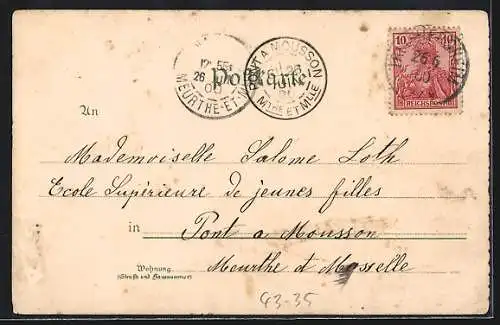 10 10
REICHSPOST
26.6
00
MEURTHE-ET-M
26
00
PONT A MOUSSON
MTHE ET MLLE
Postkarte
An
Mademoiselle Salome Loth
Ecole Supérieure de jeunes filles
in Pont a Mousson
Meurthe et Moselle
Wohnung
(Straße und Hausnummer)
43-35